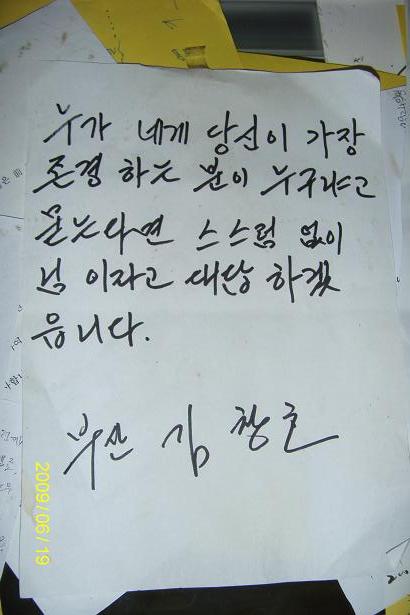 누가 네게 당신이 가장
존경 하는 분이 누구냐고
묻는다면 스스럼 없이
님 이라고 대답 하겠
읍니다.
부산 김 창호
2009/06/19